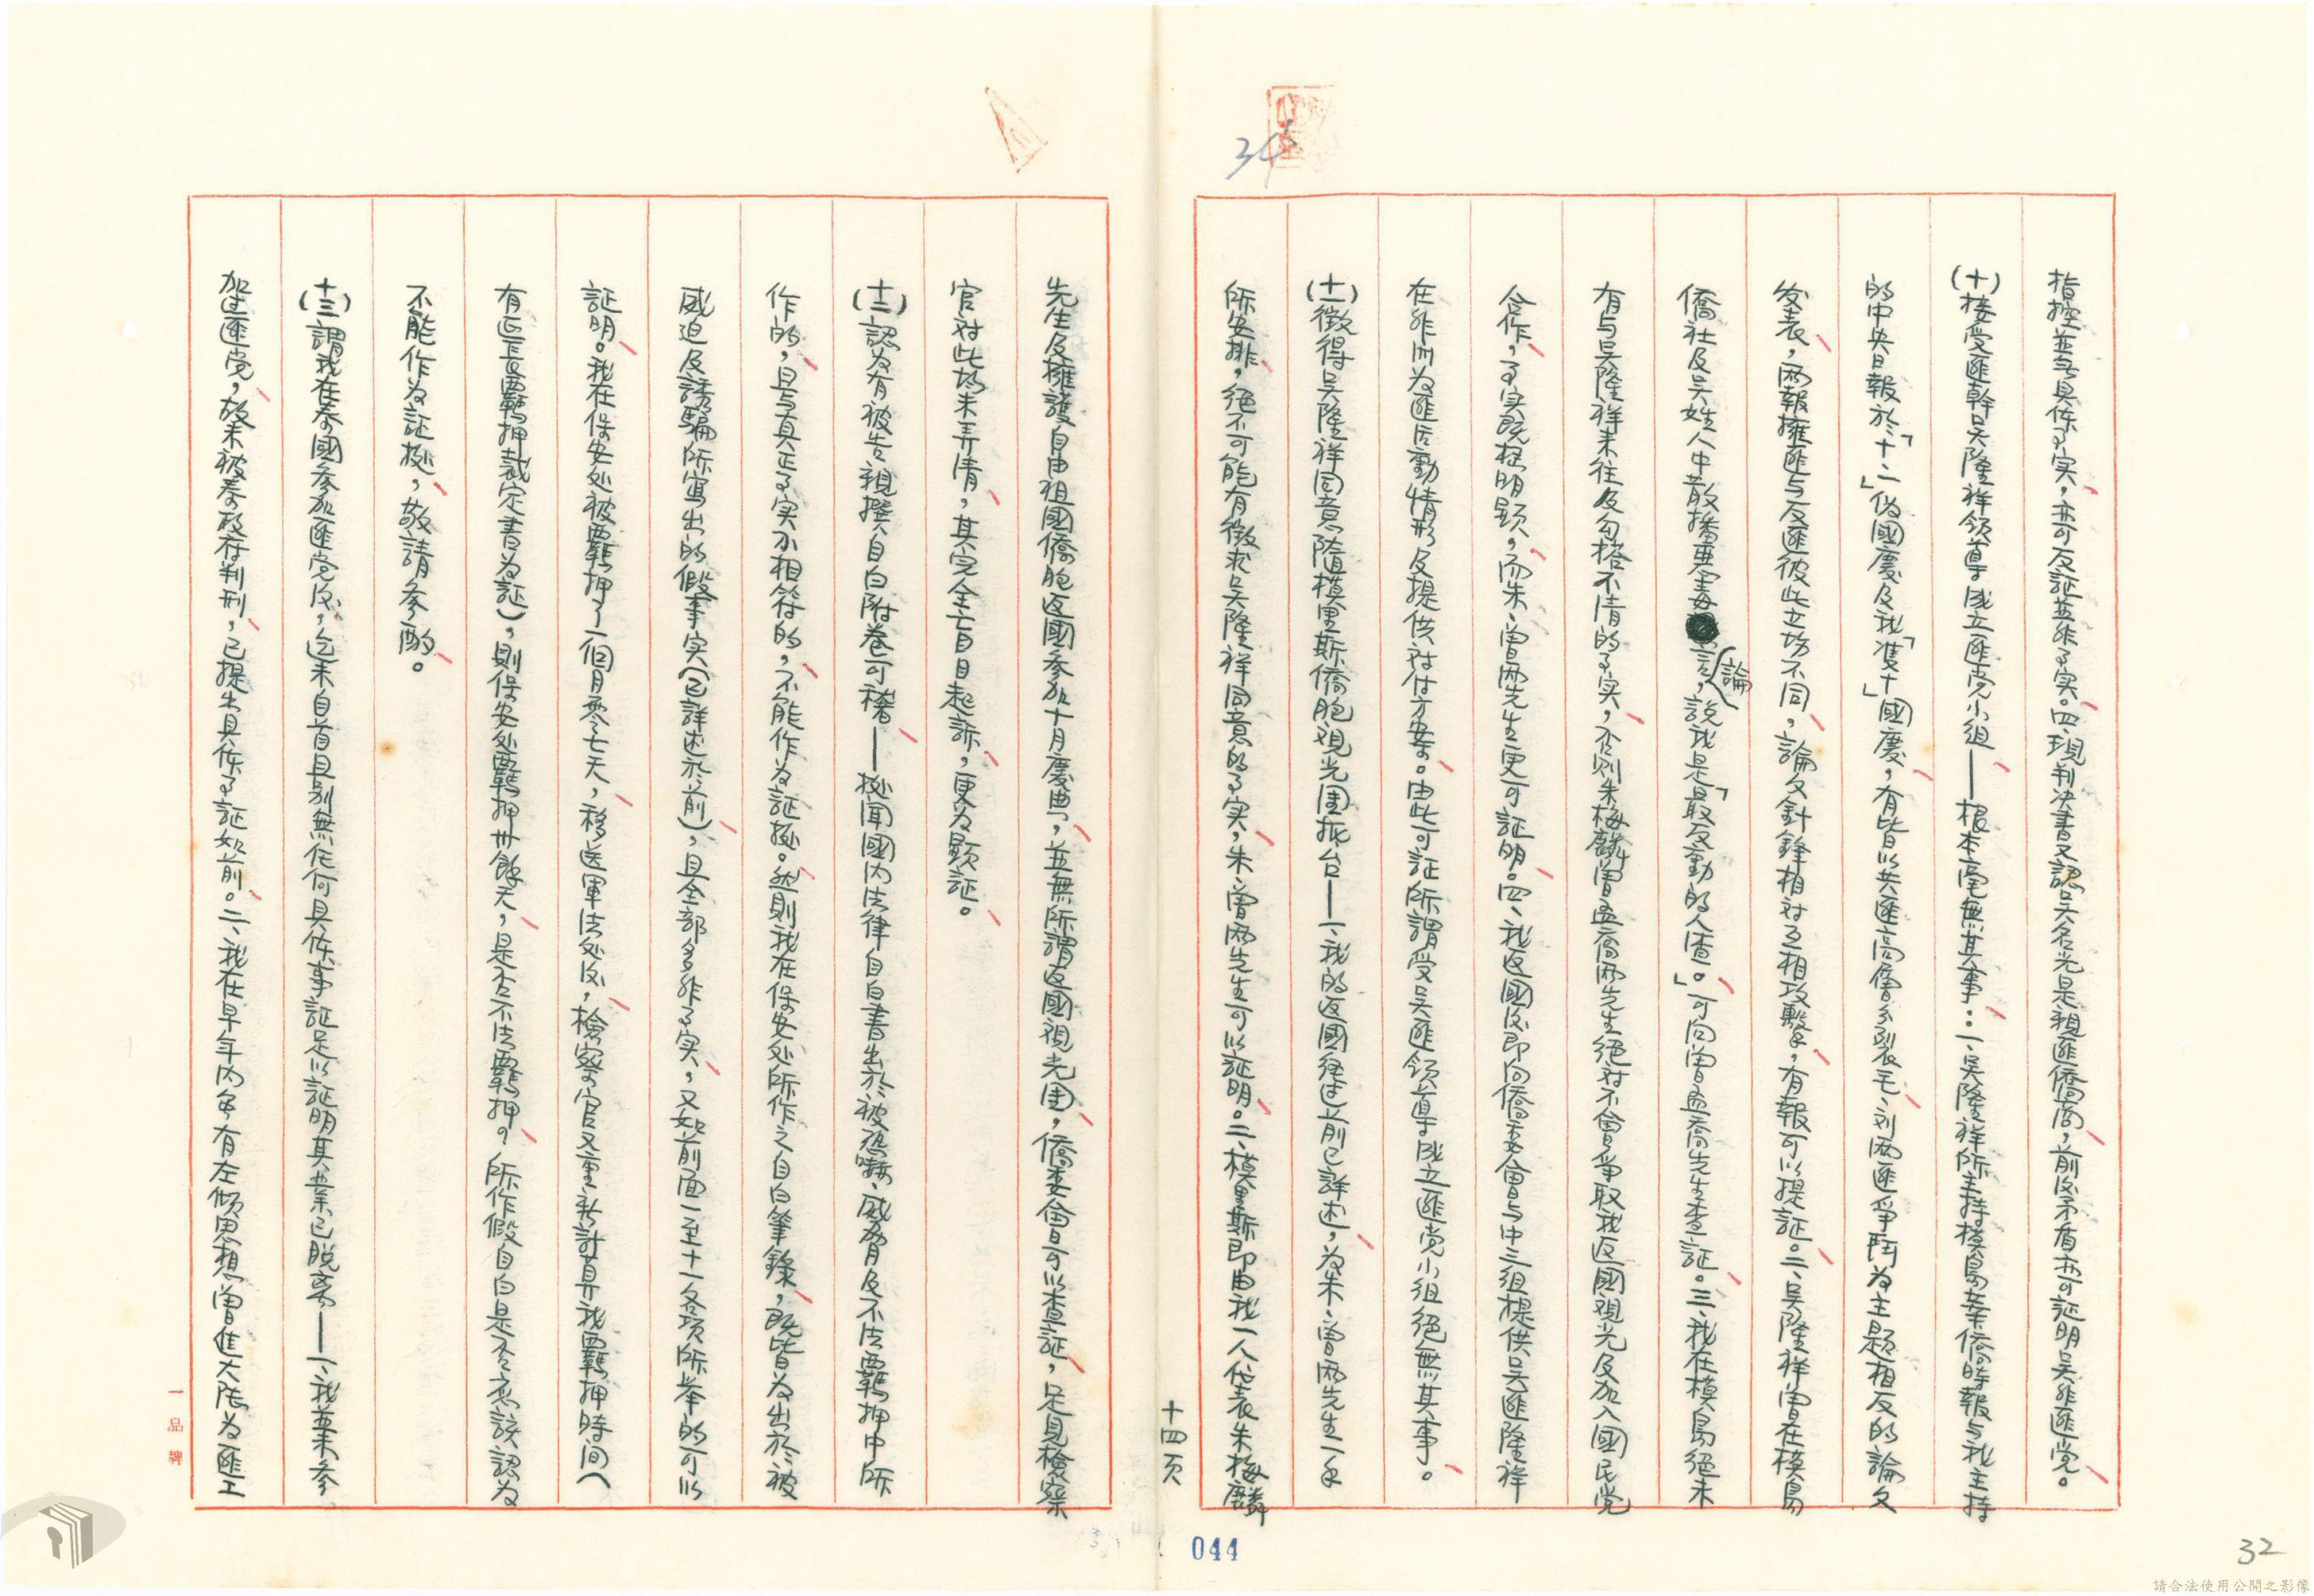 34
指控並無具体事实，亦可反証並非事实。四、現判决書又認吳名光是親匪僑商，前後矛盾亦可証明吳非匪党。
(十)接受匪幹吳隆祥領導成立匪党小組——根本毫無其事：一、吳隆祥所主持模島華僑時報与我主持
的中央日報於「十、一」偽國慶及我「双十」國慶，有皆以共匪高層分裂毛、刘两匪爭鬥为主題相反的論文
发表，两報擁匪与反匪彼此立場不同，論文針鋒相对互相攻擊，有報可以提証。二、吳隆祥曾在模島
僑社及吳姓人中散播惡毒言論，說我是「最反動的人渣。」可向曾孟喬先生查証。三、我在模島絕未
有与吳隆祥来往及勾搭不清的事实，否則朱梅麟曾孟喬两先生絕对不會爭取我返國覌光及加入國民党
合作，事实既极明顕，而朱、曾两先生更可証明。四、我返國後即向僑委會与中三組提供吳匪隆祥
在非洲为匪活動情形及提供对付方案。由此可証所謂受吳匪領導成立匪党小組絕無其事。
(十一)徵得吳隆祥同意隨模里斯僑胞覌光團抵台——一、我的返國経过前已詳述，为朱、曾两先生一手
所安排，絕不可能有徵求吳隆祥同意的事实，朱、曾两先生可以証明。二、模里斯即由我一人代表朱梅麟
十四页
先生及擁護自由祖國僑胞返國參加十月慶典，並無所謂返國覌光團，僑委會可以查証，足見檢察
官对此均未弄清，其完全盲目起訴，更为顕証。
(十二)認为有被告親撰自白附卷可稽——据聞國内法律自白書出於被恐嚇、威脅及不法羈押中所
作的，且与真正事实不相符的，不能作为証据。然則我在保安处所作之自白筆錄，既皆为出於被
威迫及誘騙所寫出的假事实(已詳述於前)，且全部多非事实，又如前面一至十一各項所举的可以
証明。我在保安处被羈押了一個月零七天，移送軍法处後，檢察官又重新計算我羈押時间(
有延長羈押裁定書为証)，則保安处羈押卅餘天，是否不法羈押？所作假自白是否应該認为
不能作为証据，敬請參酌。
(十三)謂我在泰國參加匪党後，迄未自首且别無任何具体事証足以証明其業已脱离——一、我並未參
加过匪党，故未被泰政府判刑，已提出具体事証如前。二、我在早年内争有左傾思想曾進大陸为匪工
一品牌
044
32
請合法使用公開之影像